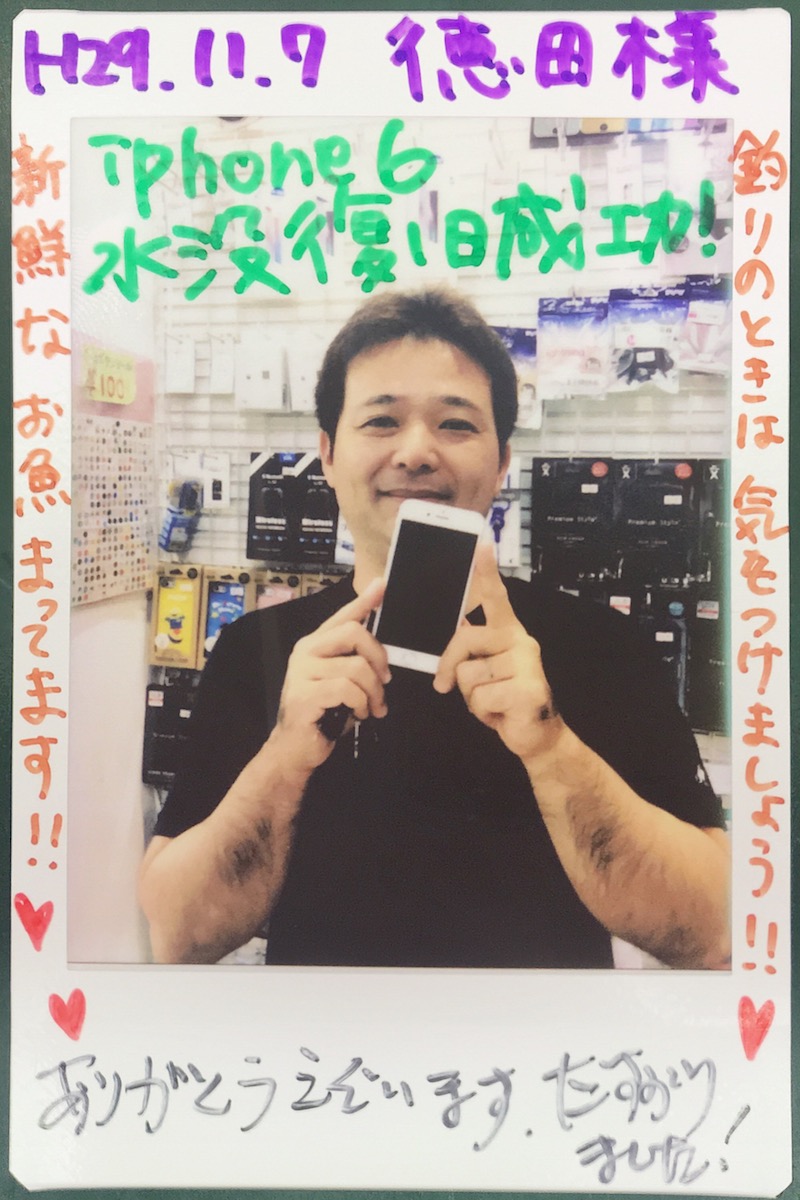 H29.11.7 徳田様
iphone6
水没復旧成功!
釣りのときは気をつけましょう!!
新鮮なお魚まってます!!
¥100
Wireless
Wireless
Premium Style
Premium Style
ありがとうございます。たすかり
ました!